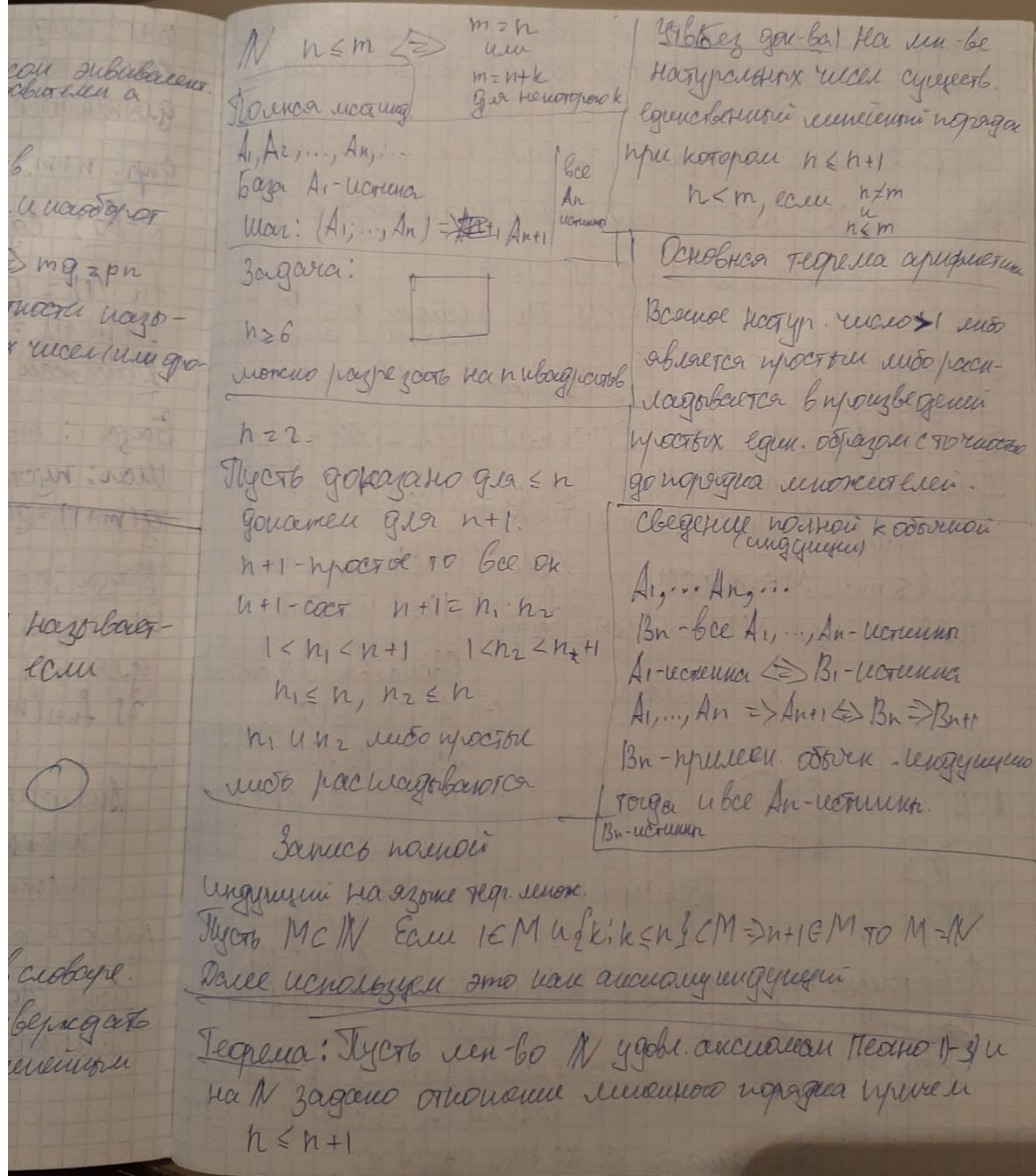 сом эквивалент.
авители а
в
и наоборот
mq = pn
тности назы-
х чисел (или дро-
называет-
если
в словаре.
верждать
линейным
N n ≤ m <=> m = n
или
m = n+k
для некоторого k
Полная мат инд
A1, A2, ..., An, ...
База A1 - истина
Шаг: (A1, ..., An) => An+1
все
An
истинны
Задача:
n ≥ 6
можно разрезать на n квадратов
n = 2.
Пусть доказано для ≤ n
докажем для n+1.
n+1 - простое то все ок
n+1 - сост n+1 = n1 · n2
1 < n1 < n+1 1 < n2 < n+1
n1 ≤ n, n2 ≤ n.
n1 и n2 либо простые
либо раскладываются
Утв (без док-ва) На мн-ве
натуральных чисел существ.
единственный линейный порядок
при котором n ≤ n+1
n < m, если n ≠ m
и
n ≤ m
Основная теорема арифметики
Всякое натур. число > 1 либо
является простым либо раск-
ладывается в произведений
простых един. образом с точностью
до порядка множителей.
Сведение полной к обычной
(индукции)
A1, ... An, ...
Bn - все A1, ..., An - истинны
A1 - истинна <=> B1 - истинна
A1, ..., An => An+1 <=> Bn => Bn+1
Bn - примен. обычн. индукцию
тогда и все An - истинны.
Bn - истинны
Запись полной
индукций на языке теор. множ.
Пусть M ⊂ N Если 1 ∈ M и {k: k ≤ n} ⊂ M => n+1 ∈ M то M = N
Далее используем это как аксиому индукций
Теорема: Пусть мн-во N удовл. аксиомам Пеано 1)-3) и
на N задано отношение линейного порядка причем
n ≤ n+1